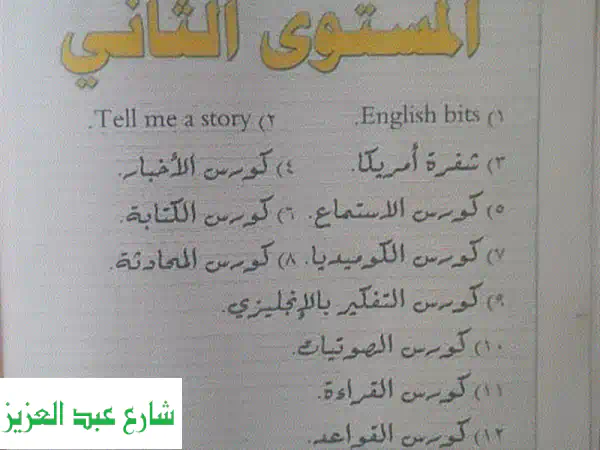 المستوى الثاني
١) English bits. ٢) Tell me a story.
٣) شفرة أمريكا. ٤) كورس الأخبار.
٥) كورس الاستماع. ٦) كورس الكتابة.
٧) كورس الكوميديا. ٨) كورس المحادثة.
٩) كورس التفكير بالإنجليزي.
١٠) كورس الصوتيات.
١١) كورس القراءة.
١٢) كورس القواعد.
شارع عبد العزيز